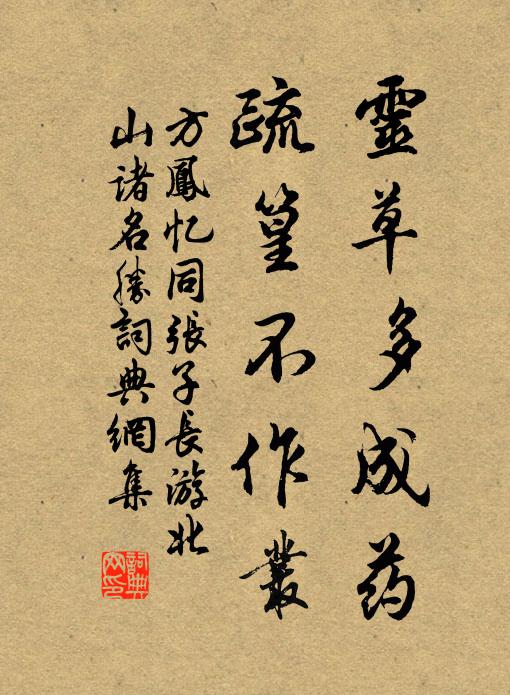 靈草多成药
疏篁不作叢
方鳳忆同張子長游北
山諸名勝詞典網集
詞典网印